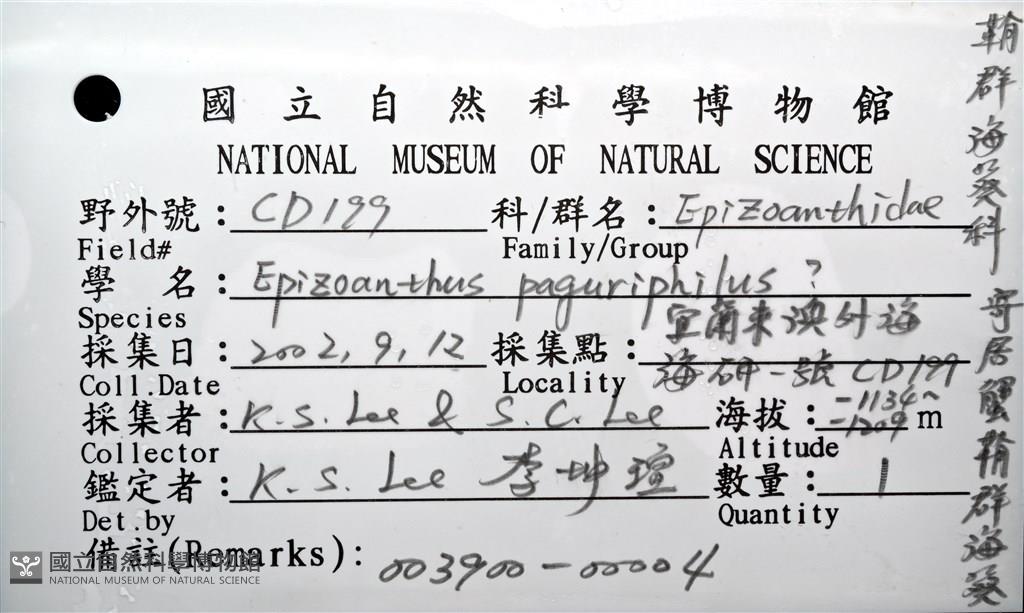 國立自然科學博物館
NATIONAL MUSEUM OF NATURAL SCIENCE
野外號：CD199 科/群名：Epizoanthidae
Field# Family/Group
學 名：Epizoanthus paguriphilus ?
Species 宜蘭東澳外海
採集日：2002, 9, 12 採集點：
Coll.Date Locality 海研一號 CD199
採集者：K.S. Lee & S.C. Lee 海拔：-1134~-1209 m
Collector Altitude
鑑定者：K.S. Lee 李坤瑄 數量：1
Det.by Quantity
備註(Remarks)：003900-00004
國立自然科學博物館
NATIONAL MUSEUM OF NATURAL SCIENCE
鞘群海葵科 寄居蟹鞘群海葵